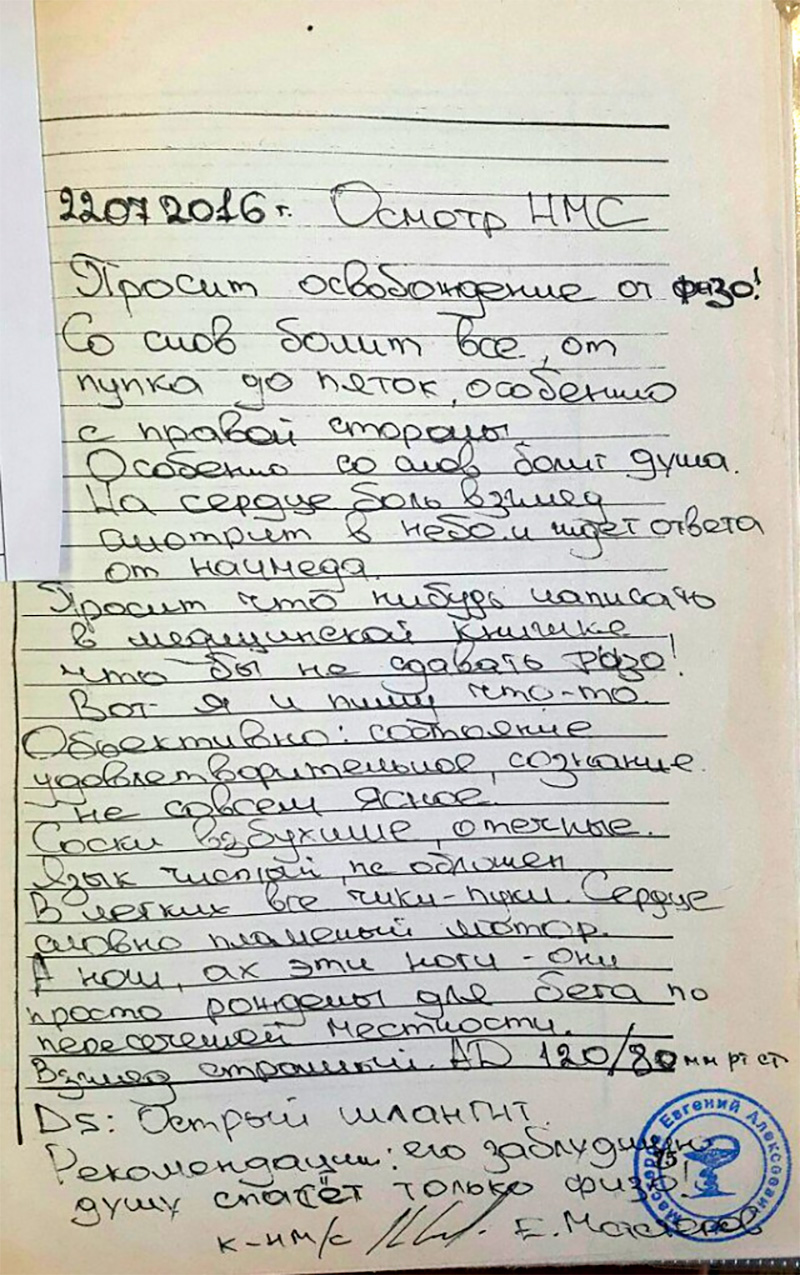 22 07 2016 г. Осмотр НМС
Просит освобождение от физо!
Со слов болит все, от
пупка до пяток, особенно
с правой стороны.
Особенно со слов болит душа.
На сердце боль взгляд
смотрит в небо и ждет ответа
от начмеда.
Просит что нибудь написать
в медицинской книжке
что бы не сдавать физо!
Вот я и пишу что-то.
Объективно: состояние
удовлетворительное, сознание
не совсем ясное.
Соски взбухшие, отечные.
Язык чистый, не обложен
В легких все чики-пуки. Сердце
словно пламенный мотор.
А ноги, ах эти ноги - они
просто рождены для бега по
пересеченой местности.
Взгляд страшный. AD 120/80 мм рт ст
Ds: Острый шлангит.
Рекомендации: его заблудшую
душу спасёт только физо!
к-н м/с Е.
Евгений Алексеевич